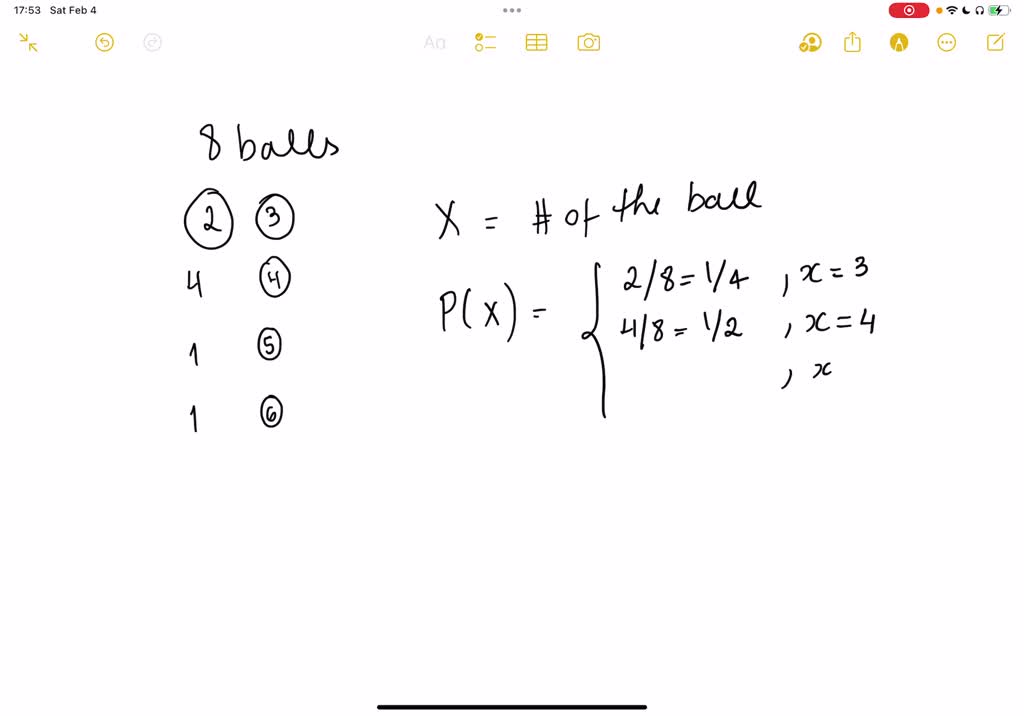 17:53 Sat Feb 4
Aa
8 balls
2 3
4 4
1 5
1 6
X = # of the ball
P(X) =
2/8 = 1/4 , x = 3
4/8 = 1/2 , x = 4
, x